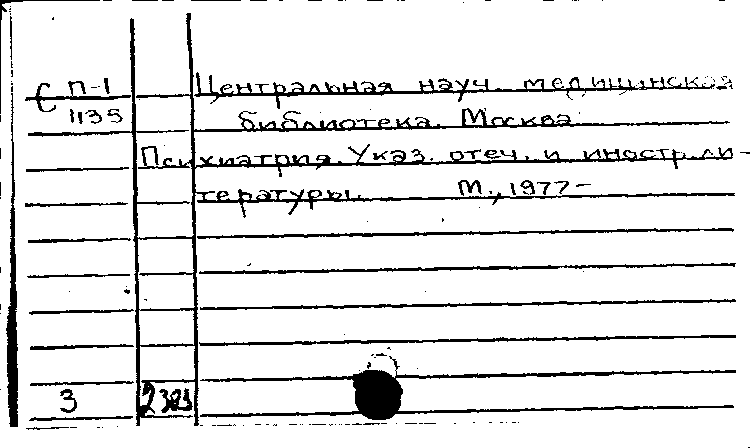 С П-1 Центральная науч. медицинская
1135
библиотека. Москва
Психиатрия. Указ. отеч. и иностр. ли-
тературы. М., 1977-
3